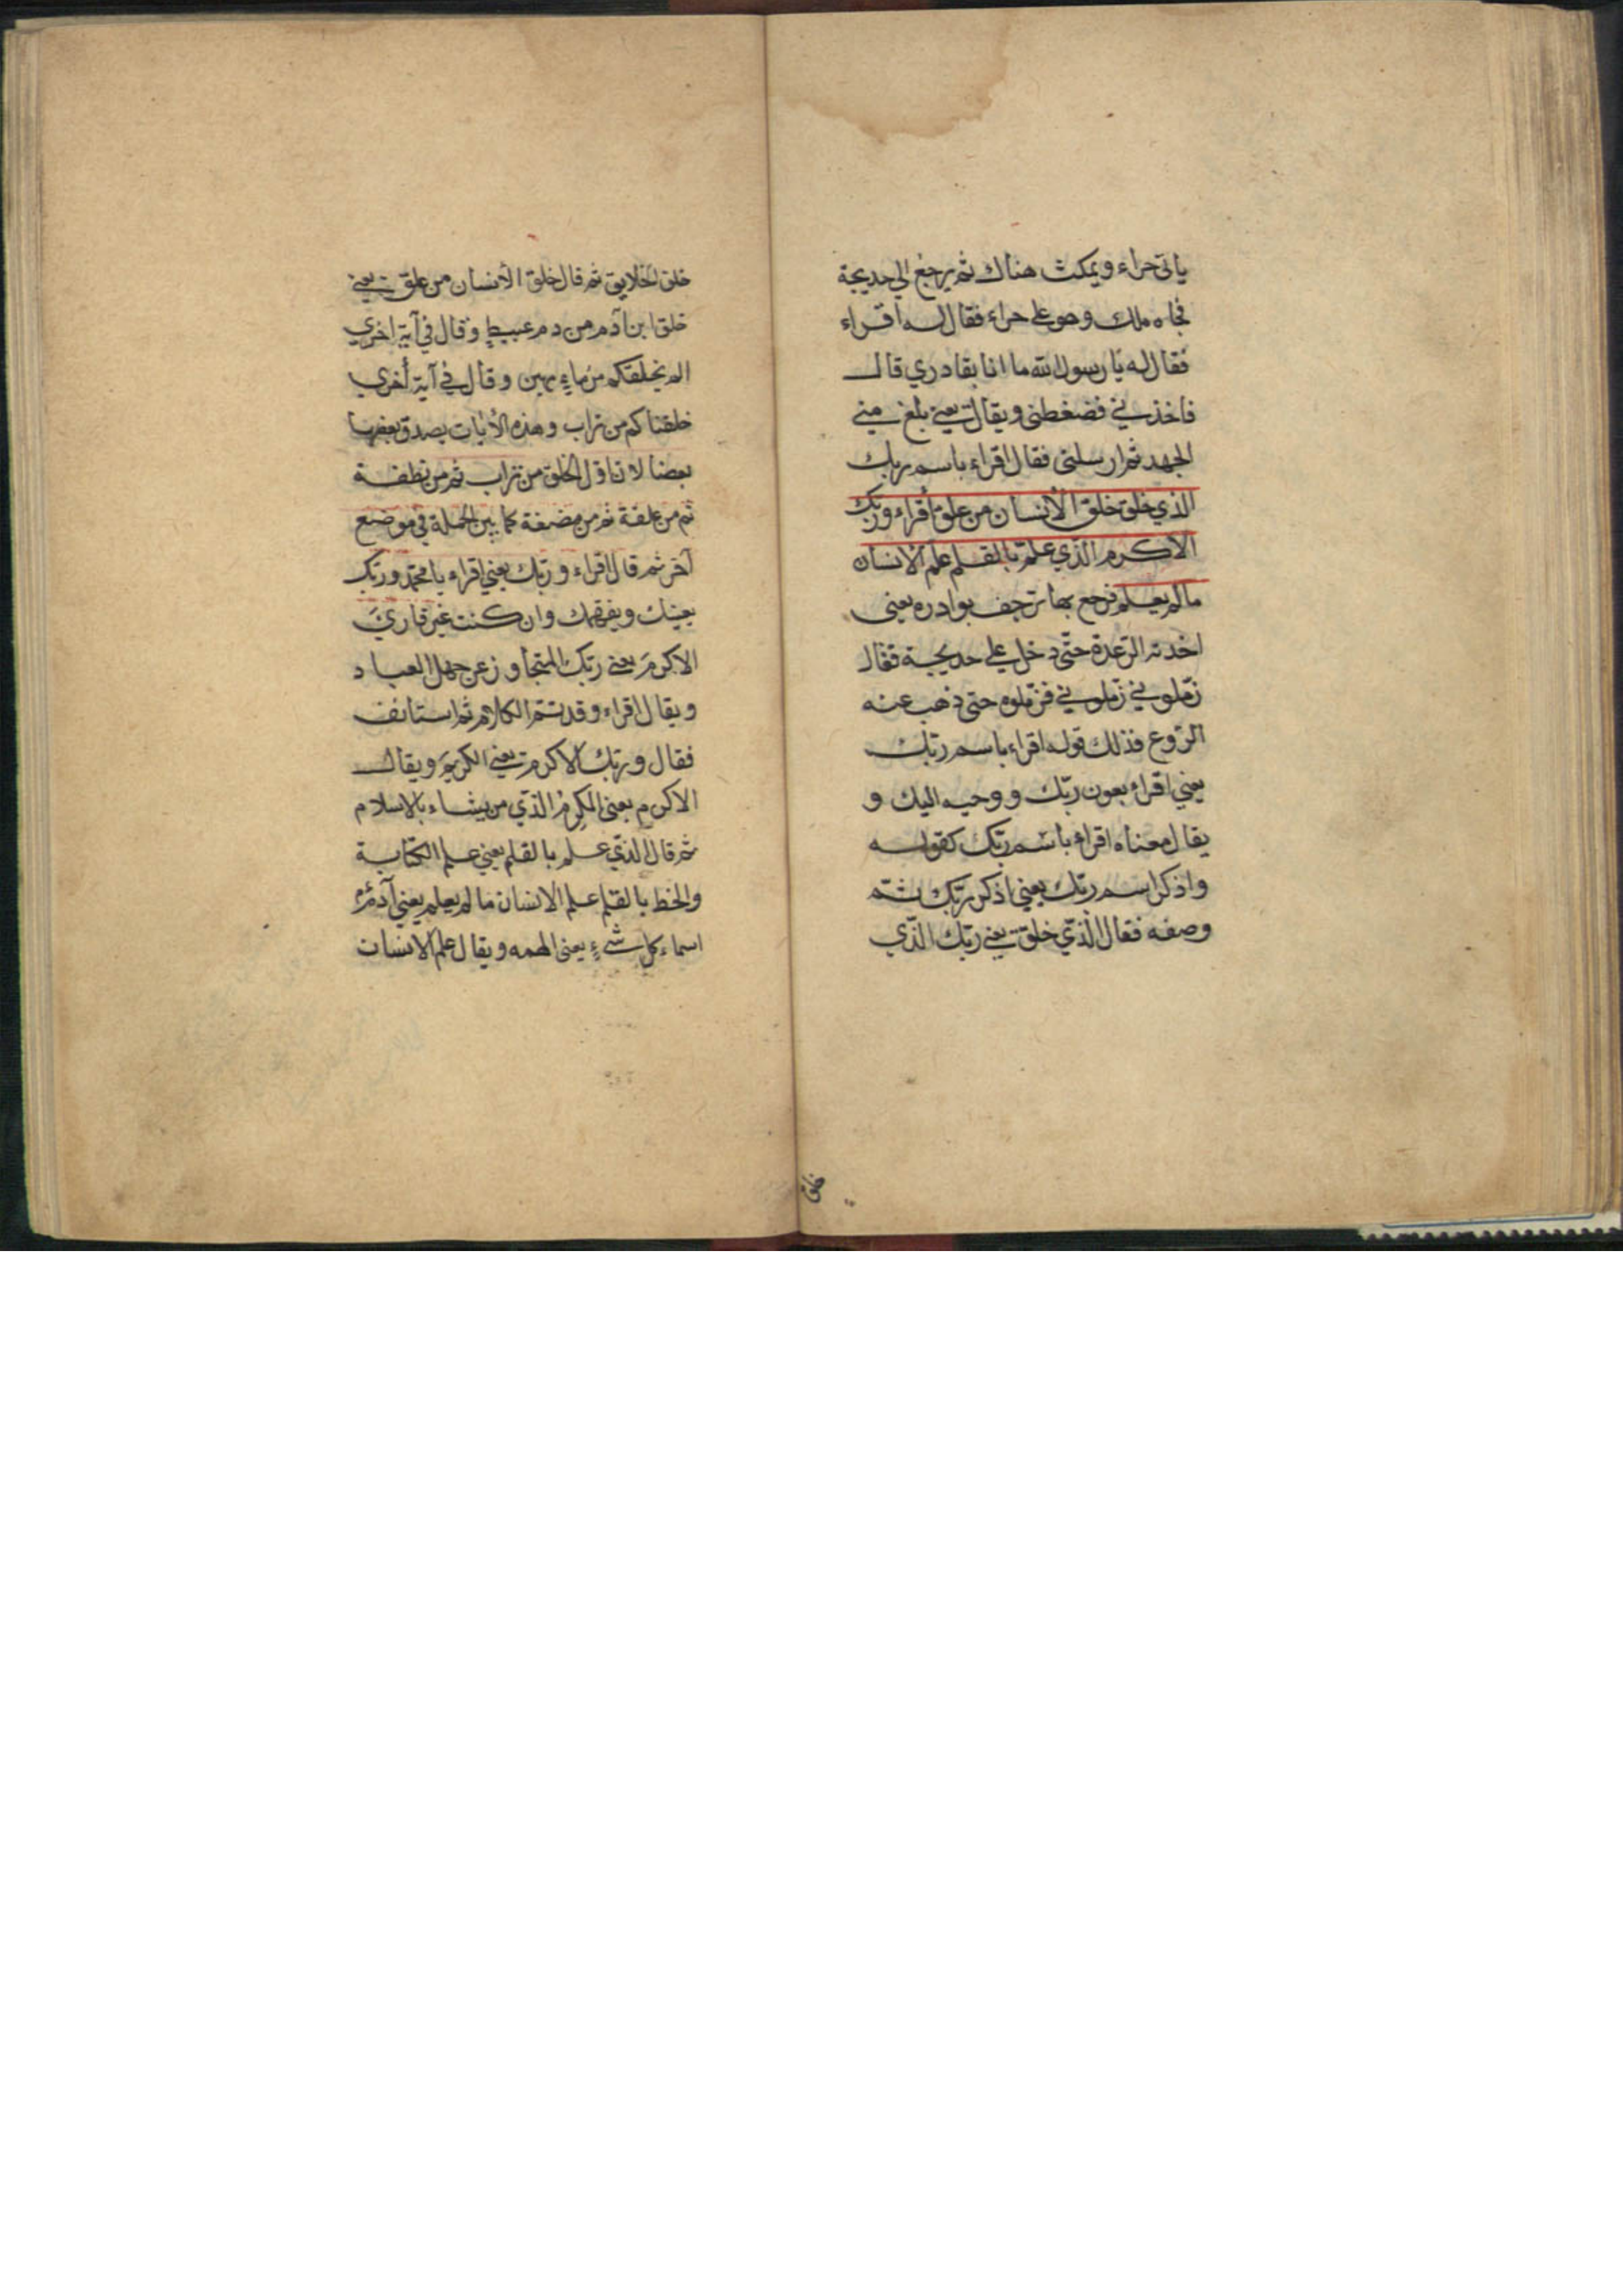 ياتي حراء ويمكث هناك ثم يرجع الي خديجة
فجاه ملك وهو علي حراء فقال له اقراء
فقال له يا رسول الله ما انا بقادري قال
فاخذني فضغطني ويقال يعني بلغ مني
الجهد ثم ارسلني فقال اقراء باسم ربك
الذي خلق خلق الانسان من علق اقراء وربك
الاكرم الذي علم بالقلم علم الانسان
ما لم يعلم فرجع بها ترجف بوادره يعني
اخذته الرعدة حتى دخل علي خديجة فقال
زملوني زملوني فزملوه حتى ذهب عنه
الروع فذلك قوله اقراء باسم ربك
يعني اقراء بعون ربك ووحيه اليك و
يقال معناه اقراء باسم ربك كقوله
واذكر اسم ربك يعني اذكر ربك ثم
وصفه فقال الذي خلق يعني ربك الذي
خلق
خلق الخلايق ثم قال خلق الأنسان من علق يعني
خلق ابن آدم من دم عبيط وقال في آية اخري
الم نخلقكم من ماء مهين وقال في آية أخري
خلقناكم من تراب وهذه الأيات يصدق بعضها
بعضا لان اول الخلق من تراب ثم من نطفة
ثم من علقة ثم من مضغة كما بين الجملة في موضع
آخر ثم قال اقراء وربك يعني اقراء يا محمد وربك
يعينك ويفهمك وان كنت غير قاري
الاكرم يعني ربك المتجاوز عن جهل العباد
ويقال اقراء وقد تم الكلام ثم استانف
فقال وربك الاكرم يعني الكريم ويقال
الاكرم يعني المكرم الذي من يشاء بالاسلام
ثم قال الذي علم بالقلم يعني علم الكتابة
والخط بالقلم علم الانسان ما لم يعلم يعني آدم
اسماء كل شيء يعني الهمه ويقال علم الانسان